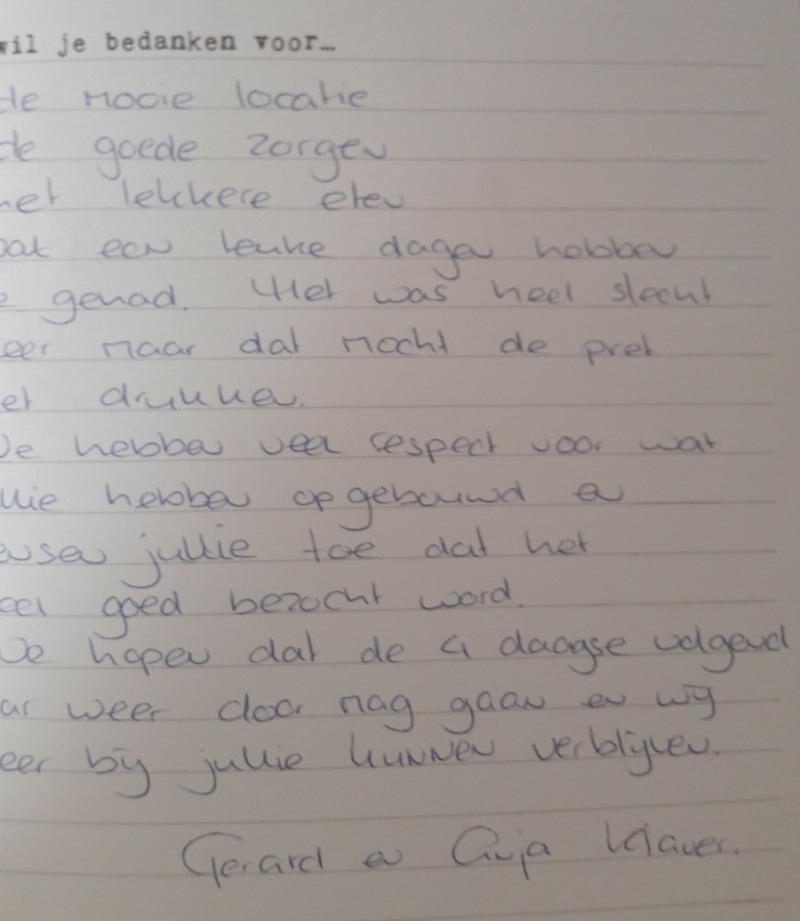 wil je bedanken voor…
de mooie locatie
de goede zorgen
het lekkere eten
wat een leuke dagen hebben
e gehad. Het was heel slecht
eer maar dat mocht de pret
et drukken.
We hebben veel respect voor wat
ullie hebben opgebouwd en
ensen jullie toe dat het
eel goed bezocht word.
We hopen dat de 4 daagse volgend
ar weer door mag gaan en wij
eer bij jullie kunnen verblijven.
Gerard en Anja Klaver.